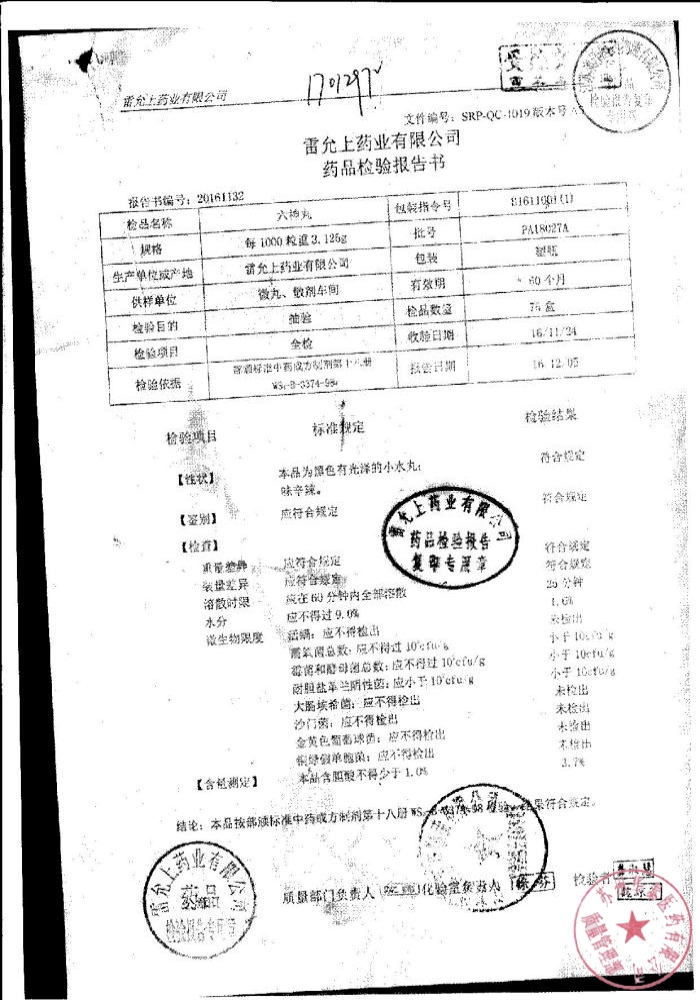 雷允上药业有限公司
170129
文件编号：SRP-QC-1019 版本号
雷允上药业有限公司
药品检验报告书
报告书编号：20161132
检品名称 六神丸 包装指令号 S1611001(1)
规格 每1000粒重3.125g 批号 PA18027A
生产单位或产地 雷允上药业有限公司 包装 塑瓶
供样单位 微丸、散剂车间 有效期 60个月
检验目的 抽验 检品数量 75盒
检验项目 全检 收验日期 16/11/24
检验依据 部颁标准中药成方制剂第十八册 报告日期 16.12.05
WS₃-B-3374-98
检验项目 标准规定 检验结果
【性状】 本品为黑色有光泽的小水丸； 符合规定
味辛辣。
【鉴别】 应符合规定 符合规定
【检查】
重量差异 应符合规定 符合规定
装量差异 应符合规定 符合规定
溶散时限 应在60分钟内全部溶散 25分钟
水分 应不得过9.0% 1.6%
微生物限度 活螨：应不得检出 未检出
需氧菌总数：应不得过 cfu/g 小于10cfu/g
霉菌和酵母菌总数：应不得过 cfu/g 小于10cfu/g
耐胆盐革兰阴性菌：应小于 cfu/g 小于10cfu/g
大肠埃希菌：应不得检出 未检出
沙门菌：应不得检出 未检出
金黄色葡萄球菌：应不得检出 未检出
铜绿假单胞菌：应不得检出 未检出
【含量测定】 本品含胆酸不得少于1.0% 3.7%
结论：本品按部颁标准中药成方制剂第十八册WS₃-B-3374-98检验，结果符合规定。
质量部门负责人 化验室负责人 检验者
雷允上药业有限公司
药品检验报告
复印专用章
雷允上药业有限公司
药品
检验报告专用章
医药有限公司
质量管理